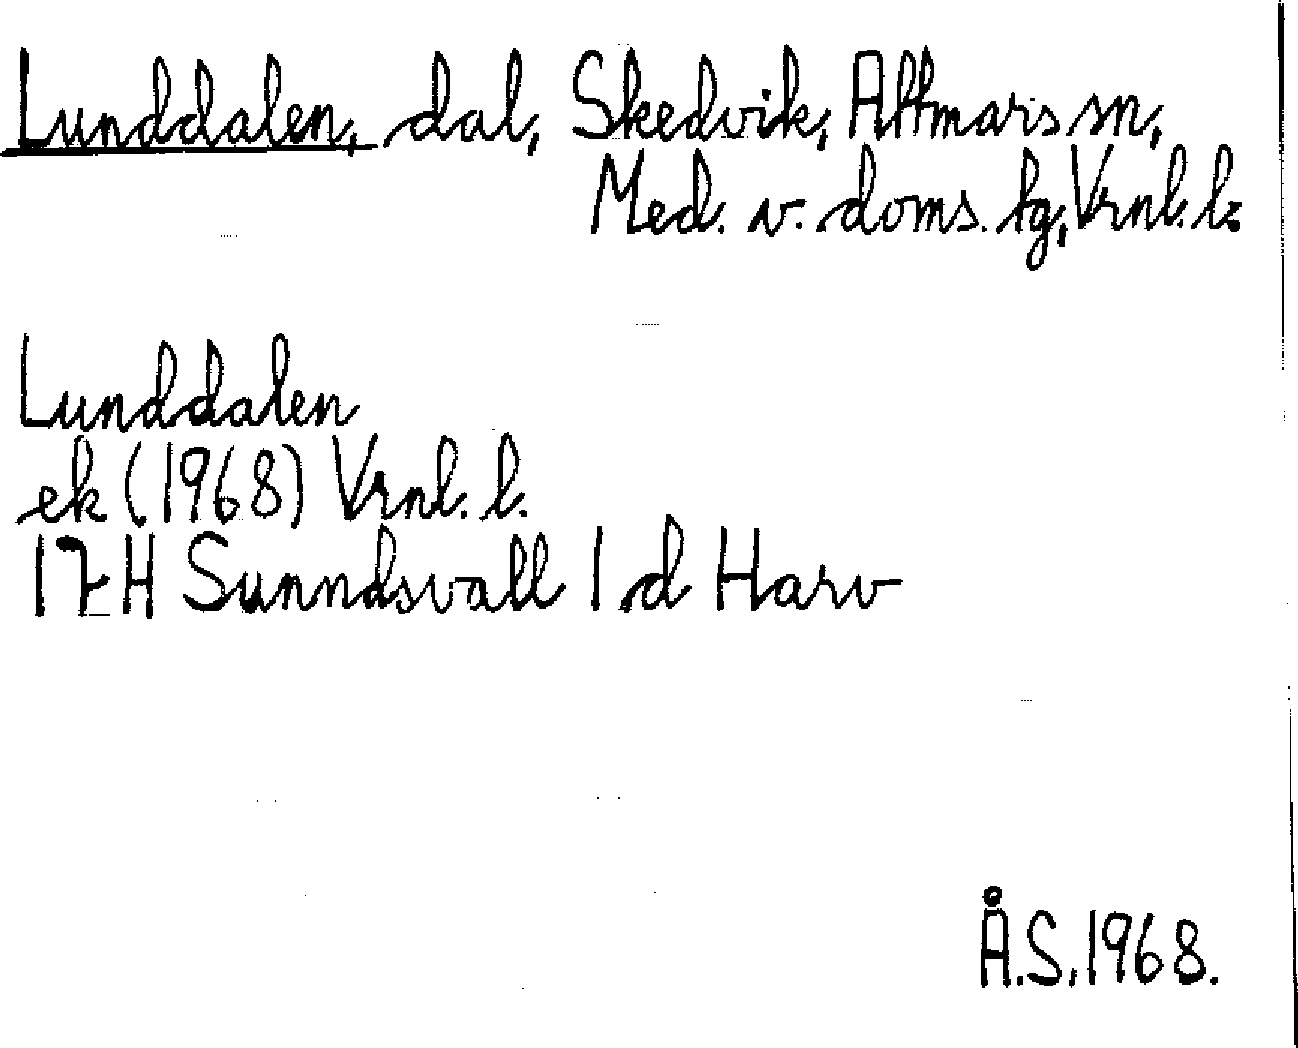 Lunddalen, dal, Skedvik, Attmars sn,
Med. v. doms. tg, Vrnl. l.
Lunddalen
ek (1968) Vrnl. l.
17 H Sunndsvall 1 d Harv
Å.S. 1968.